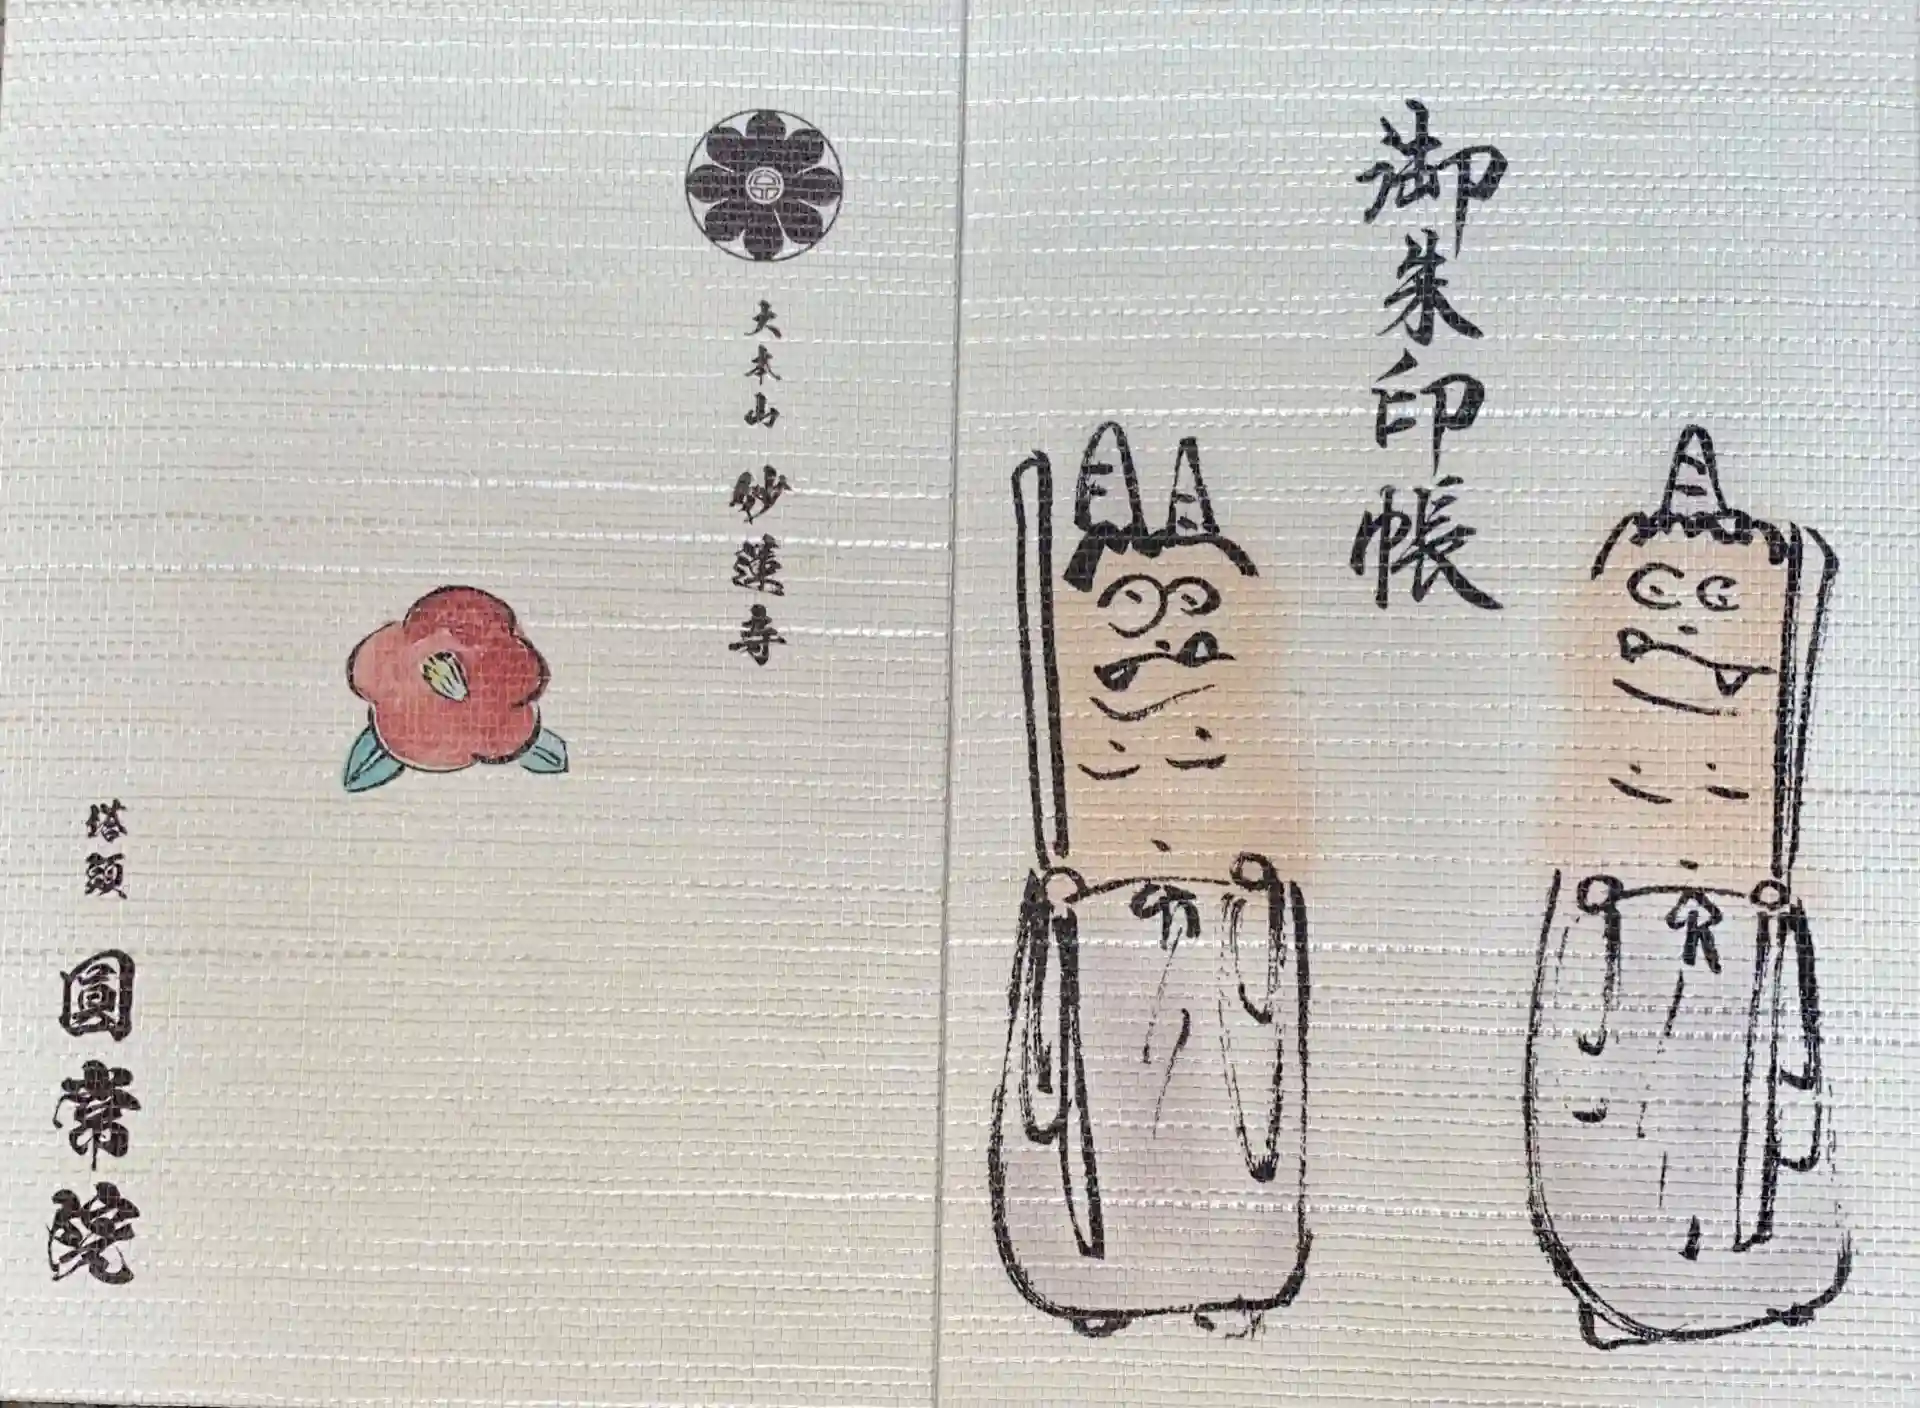 御朱印帳
大本山 妙蓮寺
塔頭 圓常院